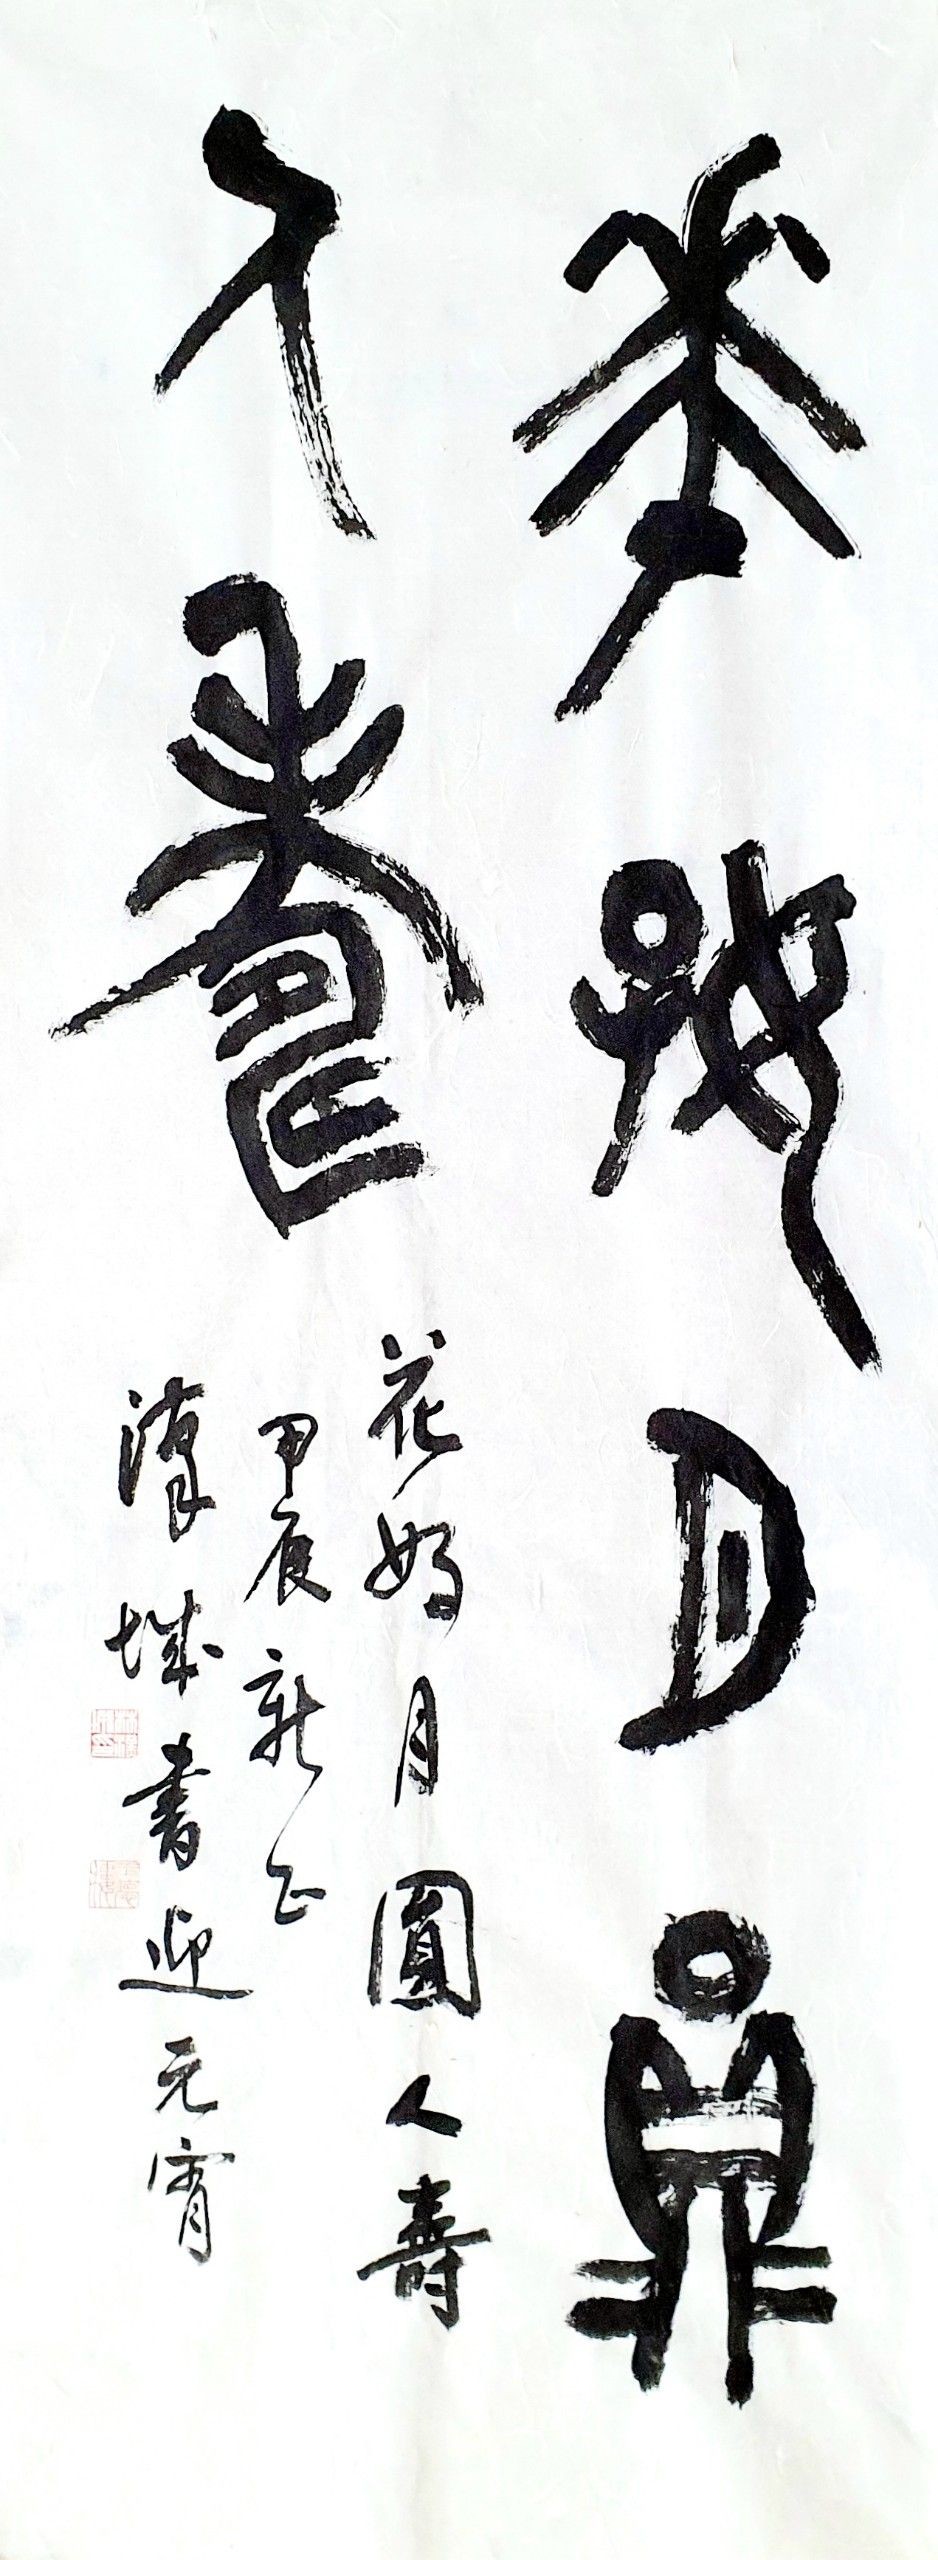 華好月圓
人壽
花好月圓人壽
甲辰新正
漢城書迎元宵